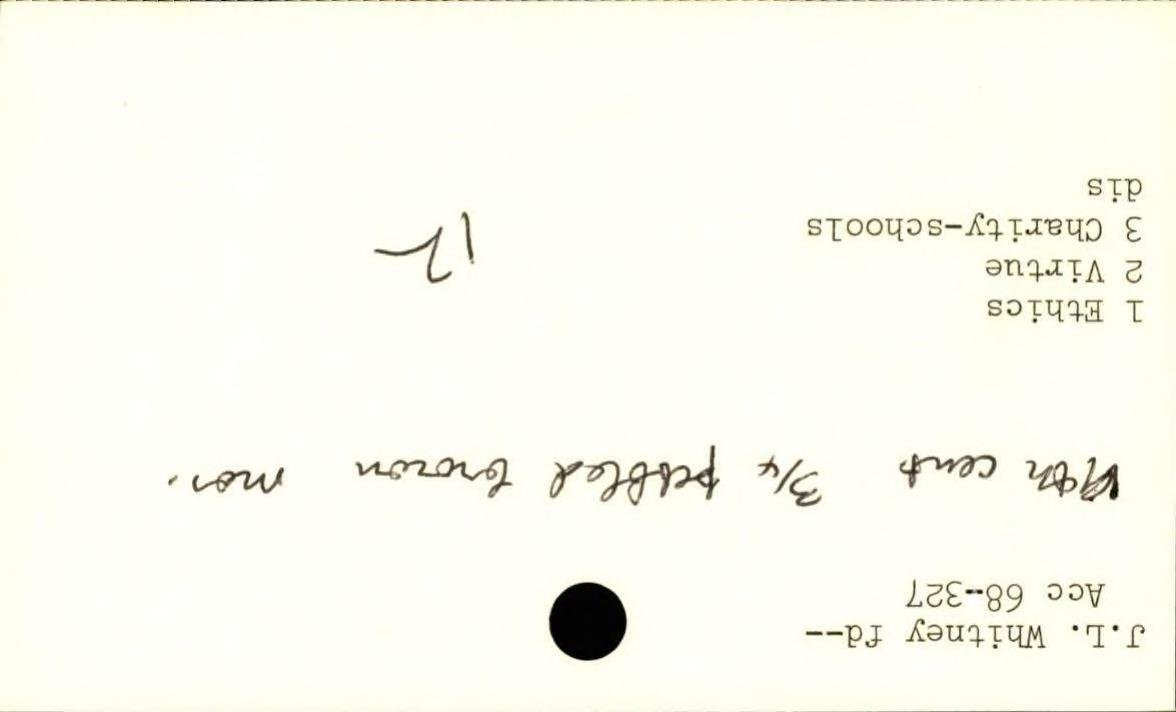 J.L. Whitney fd--
Acc 68-327
th cent 3/4 pebbled brown mor.
1 Ethics
2 Virtue
3 Charity-schools
dis